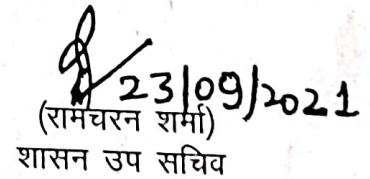 23/09/2021
(रामचरन शर्मा)
शासन उप सचिव